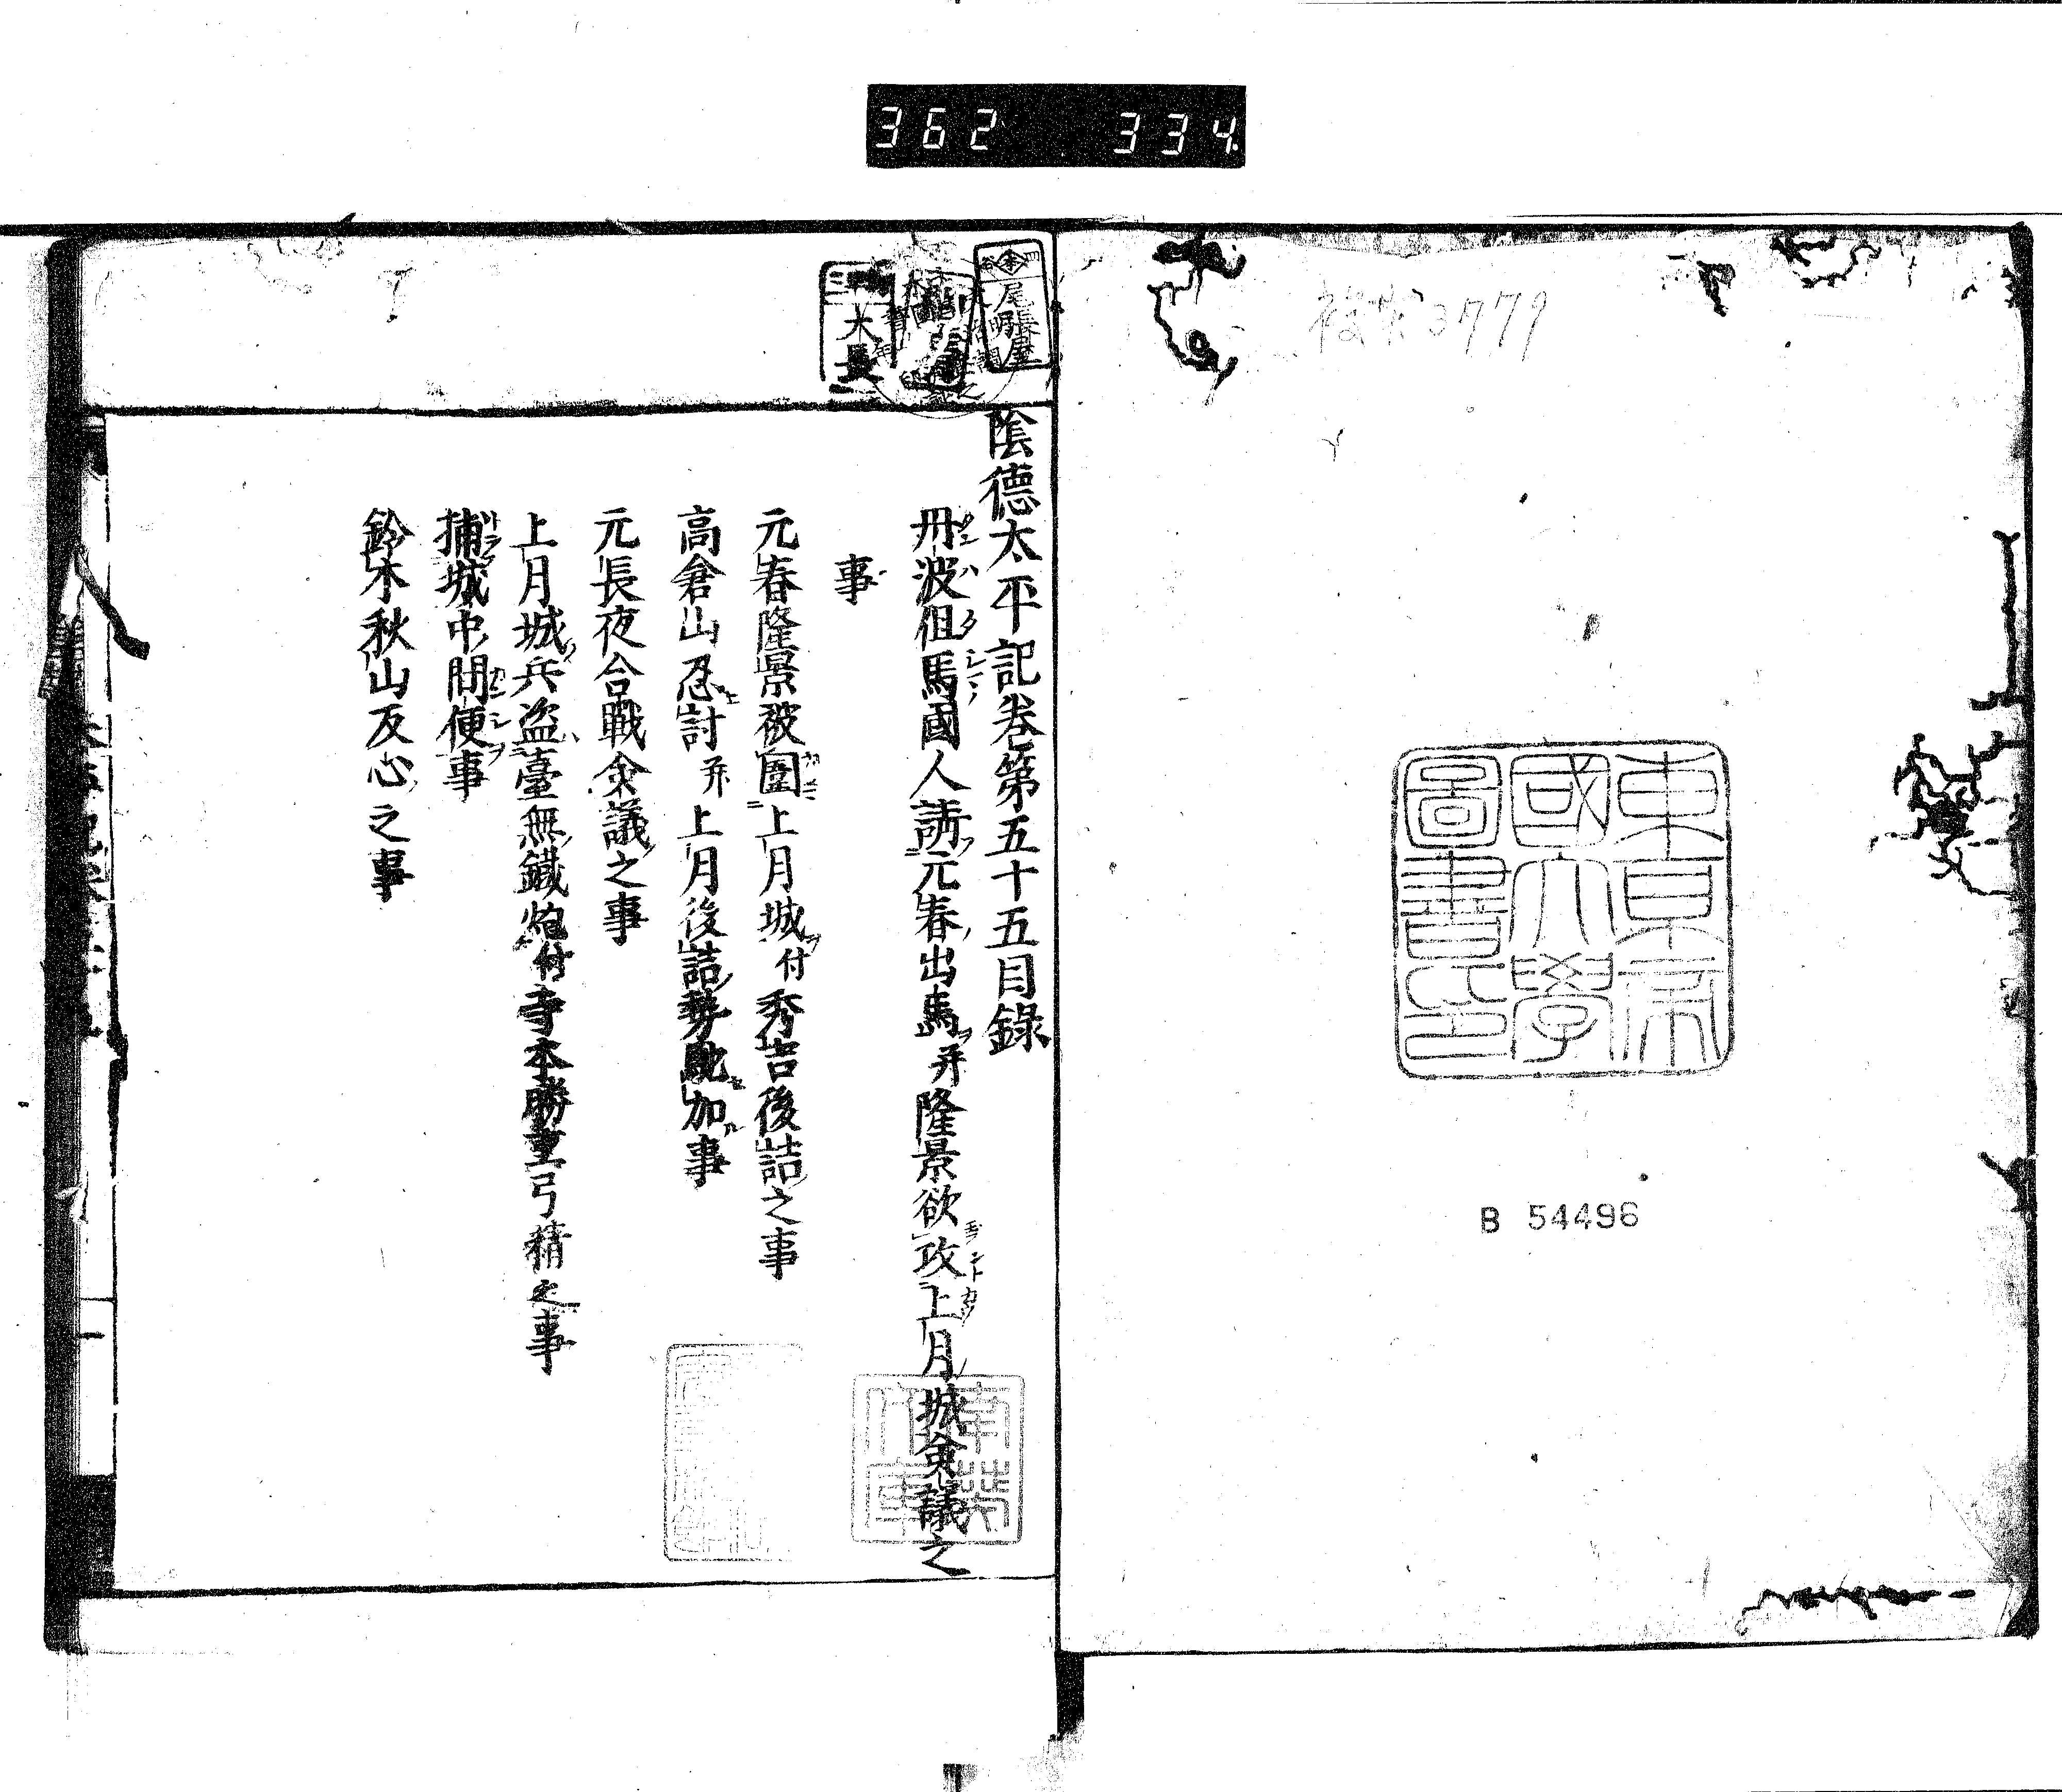 362 334
複製 3779
東京帝
國大學
圖書印
B 54496
尾張屋
明
大長
陰德太平記巻第五十五目錄
丹波但馬國人請元春出馬并隆景欲攻上月城僉議之
事
元春隆景被圍上月城付秀吉後詰之事
高倉山忍討并上月後詰勢馳加事
元長夜合戰僉議之事
上月城兵盗臺無鐵炮付寺本勝重弓精之事
捕城中間便事
鈴木秋山反心之事
南葵
文庫